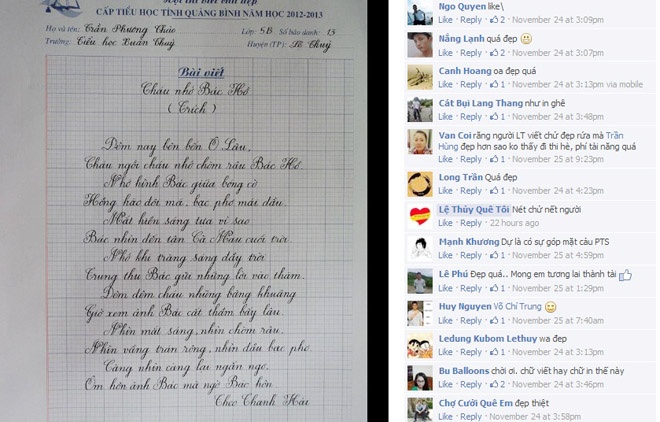 CẤP TIỂU HỌC TỈNH QUẢNG BÌNH NĂM HỌC 2012-2013
Họ và tên: Trần Phương Thảo Lớp: 5B Số báo danh: 13
Trường: Tiểu học Xuân Thuỷ Huyện (TP): Lệ Thuỷ
Bài viết
Cháu nhớ Bác Hồ
( Trích )
Đêm nay bên bến Ô Lâu,
Cháu ngồi cháu nhớ chòm râu Bác Hồ.
Nhớ hình Bác giữa bóng cờ
Hồng hào đôi má, bạc phơ mái đầu.
Mắt hiền sáng tựa vì sao
Bác nhìn đến tận Cà Mau cuối trời.
Nhớ khi trăng sáng đầy trời
Trung thu Bác gửi những lời vào thăm.
Đêm đêm cháu những bâng khuâng
Giở xem ảnh Bác cất thầm bấy lâu
Nhìn mắt sáng, nhìn chòm râu,
Nhìn vầng trán rộng, nhìn đầu bạc phơ.
Càng nhìn càng lại ngẩn ngơ,
Ôm hôn ảnh Bác mà ngờ Bác hôn.
Theo Thanh Hải
Ngo Quyen like\
Like · Reply · 2 · November 24 at 3:09pm
Nắng Lạnh quá đẹp
Like · Reply · 2 · November 24 at 3:11pm
Canh Hoang oa đẹp quá
Like · Reply · 1 · November 24 at 3:13pm via mobile
Cát Bụi Lang Thang như in ghê
Like · Reply · 1 · November 24 at 3:48pm
Van Coi răng người LT viết chử đẹp rứa mà Trần Hùng đẹp hơn sao ko thấy đi thi hè, phí tài năng quá
Like · Reply · 1 · November 25 at 9:57pm
Long Trần Quá đẹp
Like · Reply · 1 · November 24 at 4:23pm
Lệ Thủy Quê Tôi Nét chữ nết người
Like · Reply · 22 hours ago
Mạnh Khương Dự là có sự góp mặt cảu PTS
Like · Reply · 1 · November 25 at 4:59pm
Lê Phú Đẹp quá.. Mong em tương lai thành tài
Like · Reply · 1 · November 25 at 1:29pm
Huy Nguyen Võ Chí Trung
Like · Reply · 1 · November 25 at 7:40am
Ledung Kubom Lethuy wa đep
Like · Reply · 1 · November 24 at 3:13pm
Bu Balloons chời ơi. chữ viết hay chữ in thế này
Like · Reply · 2 · November 24 at 3:46pm
Chợ Cưới Quê Em đẹp thiệt
Like · Reply · November 24 at 3:58pm